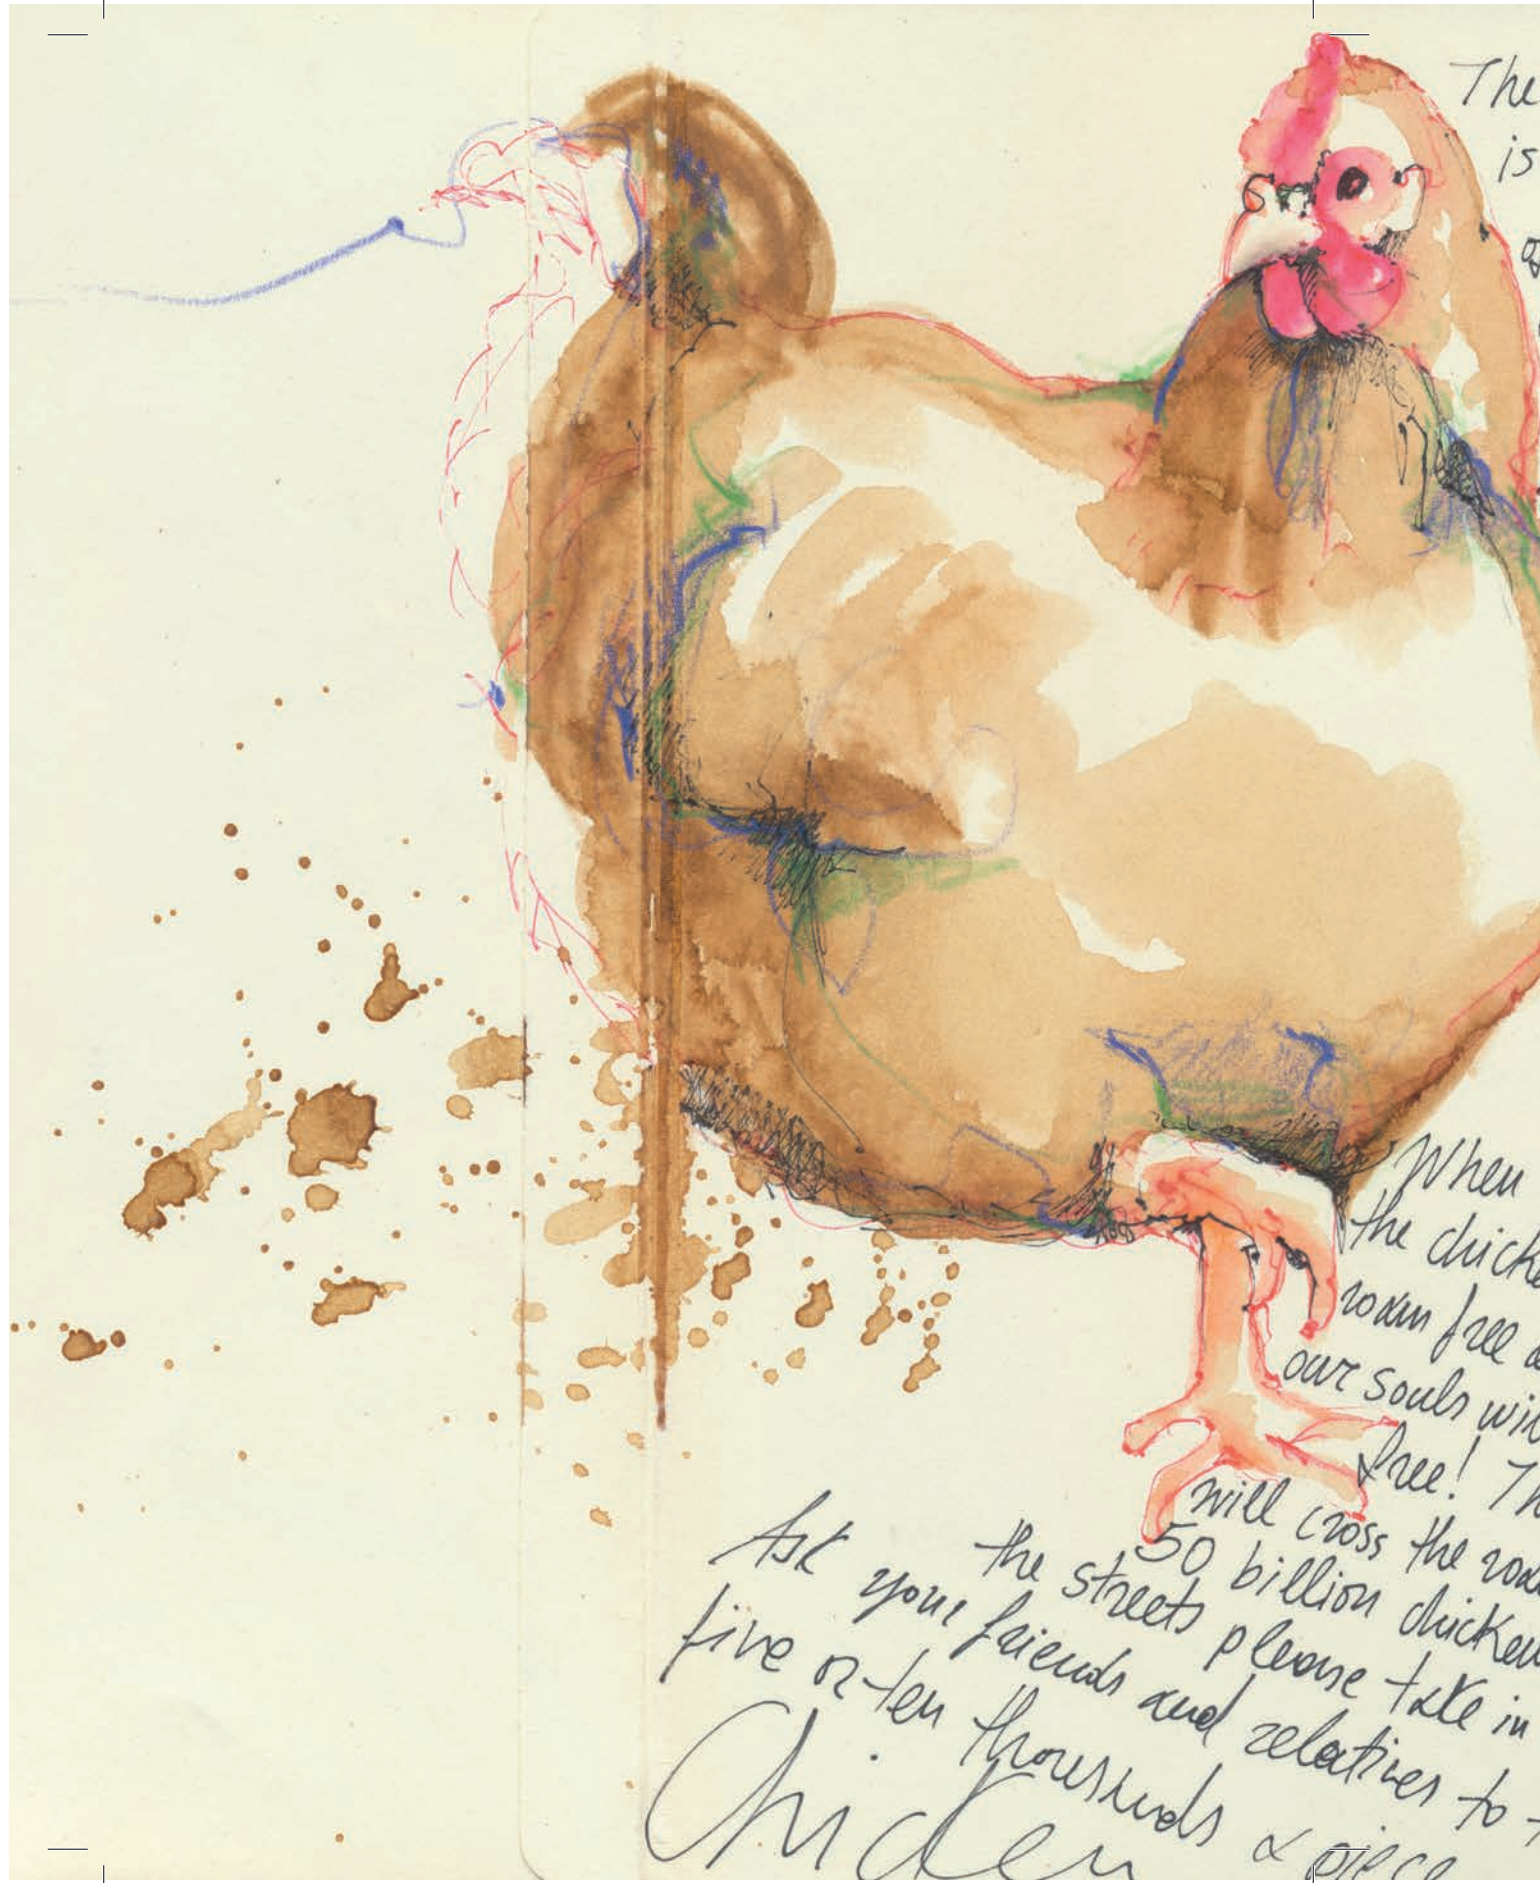 The
is
When
the chicke
roam free a
our souls wil
free! Th
will cross the roa
50 billion chicken
the streets please take in
Ask your friends and relatives to t
five or ten thousands a piece
Chicken